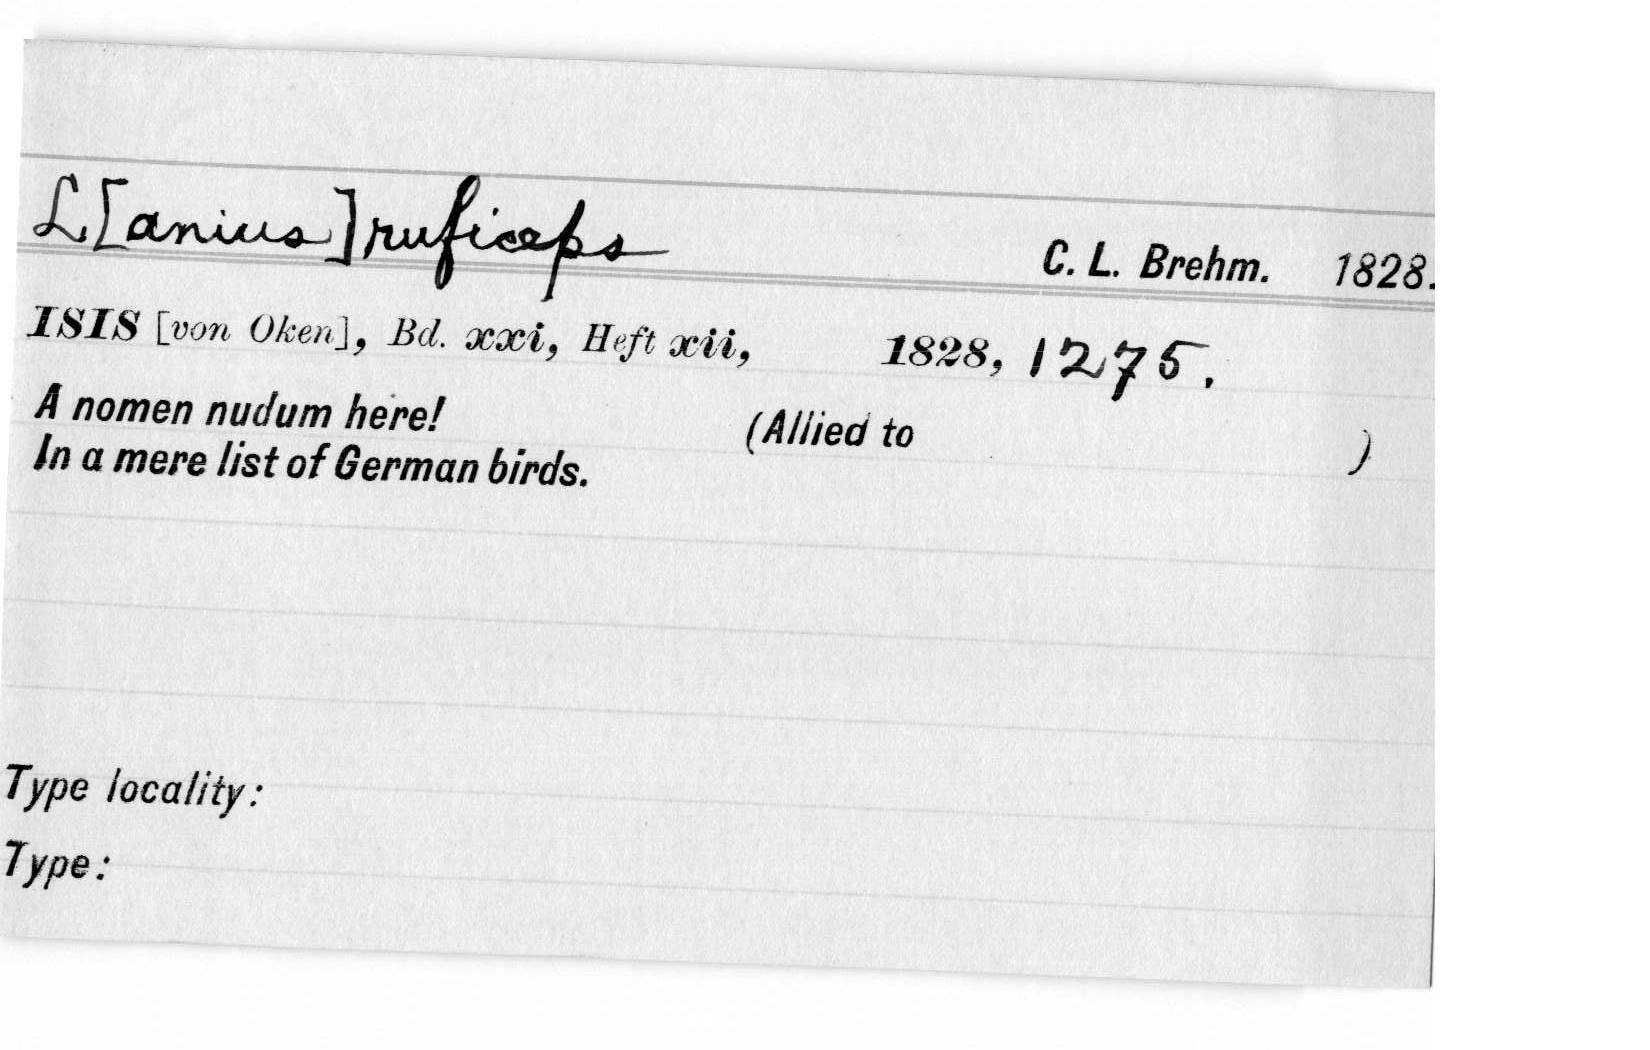 L[anius] ruficeps C. L. Brehm. 1828.
ISIS [von Oken], Bd. xxi, Heft xii, 1828, 1275.
A nomen nudum here! (Allied to )
In a mere list of German birds.
Type locality:
Type: